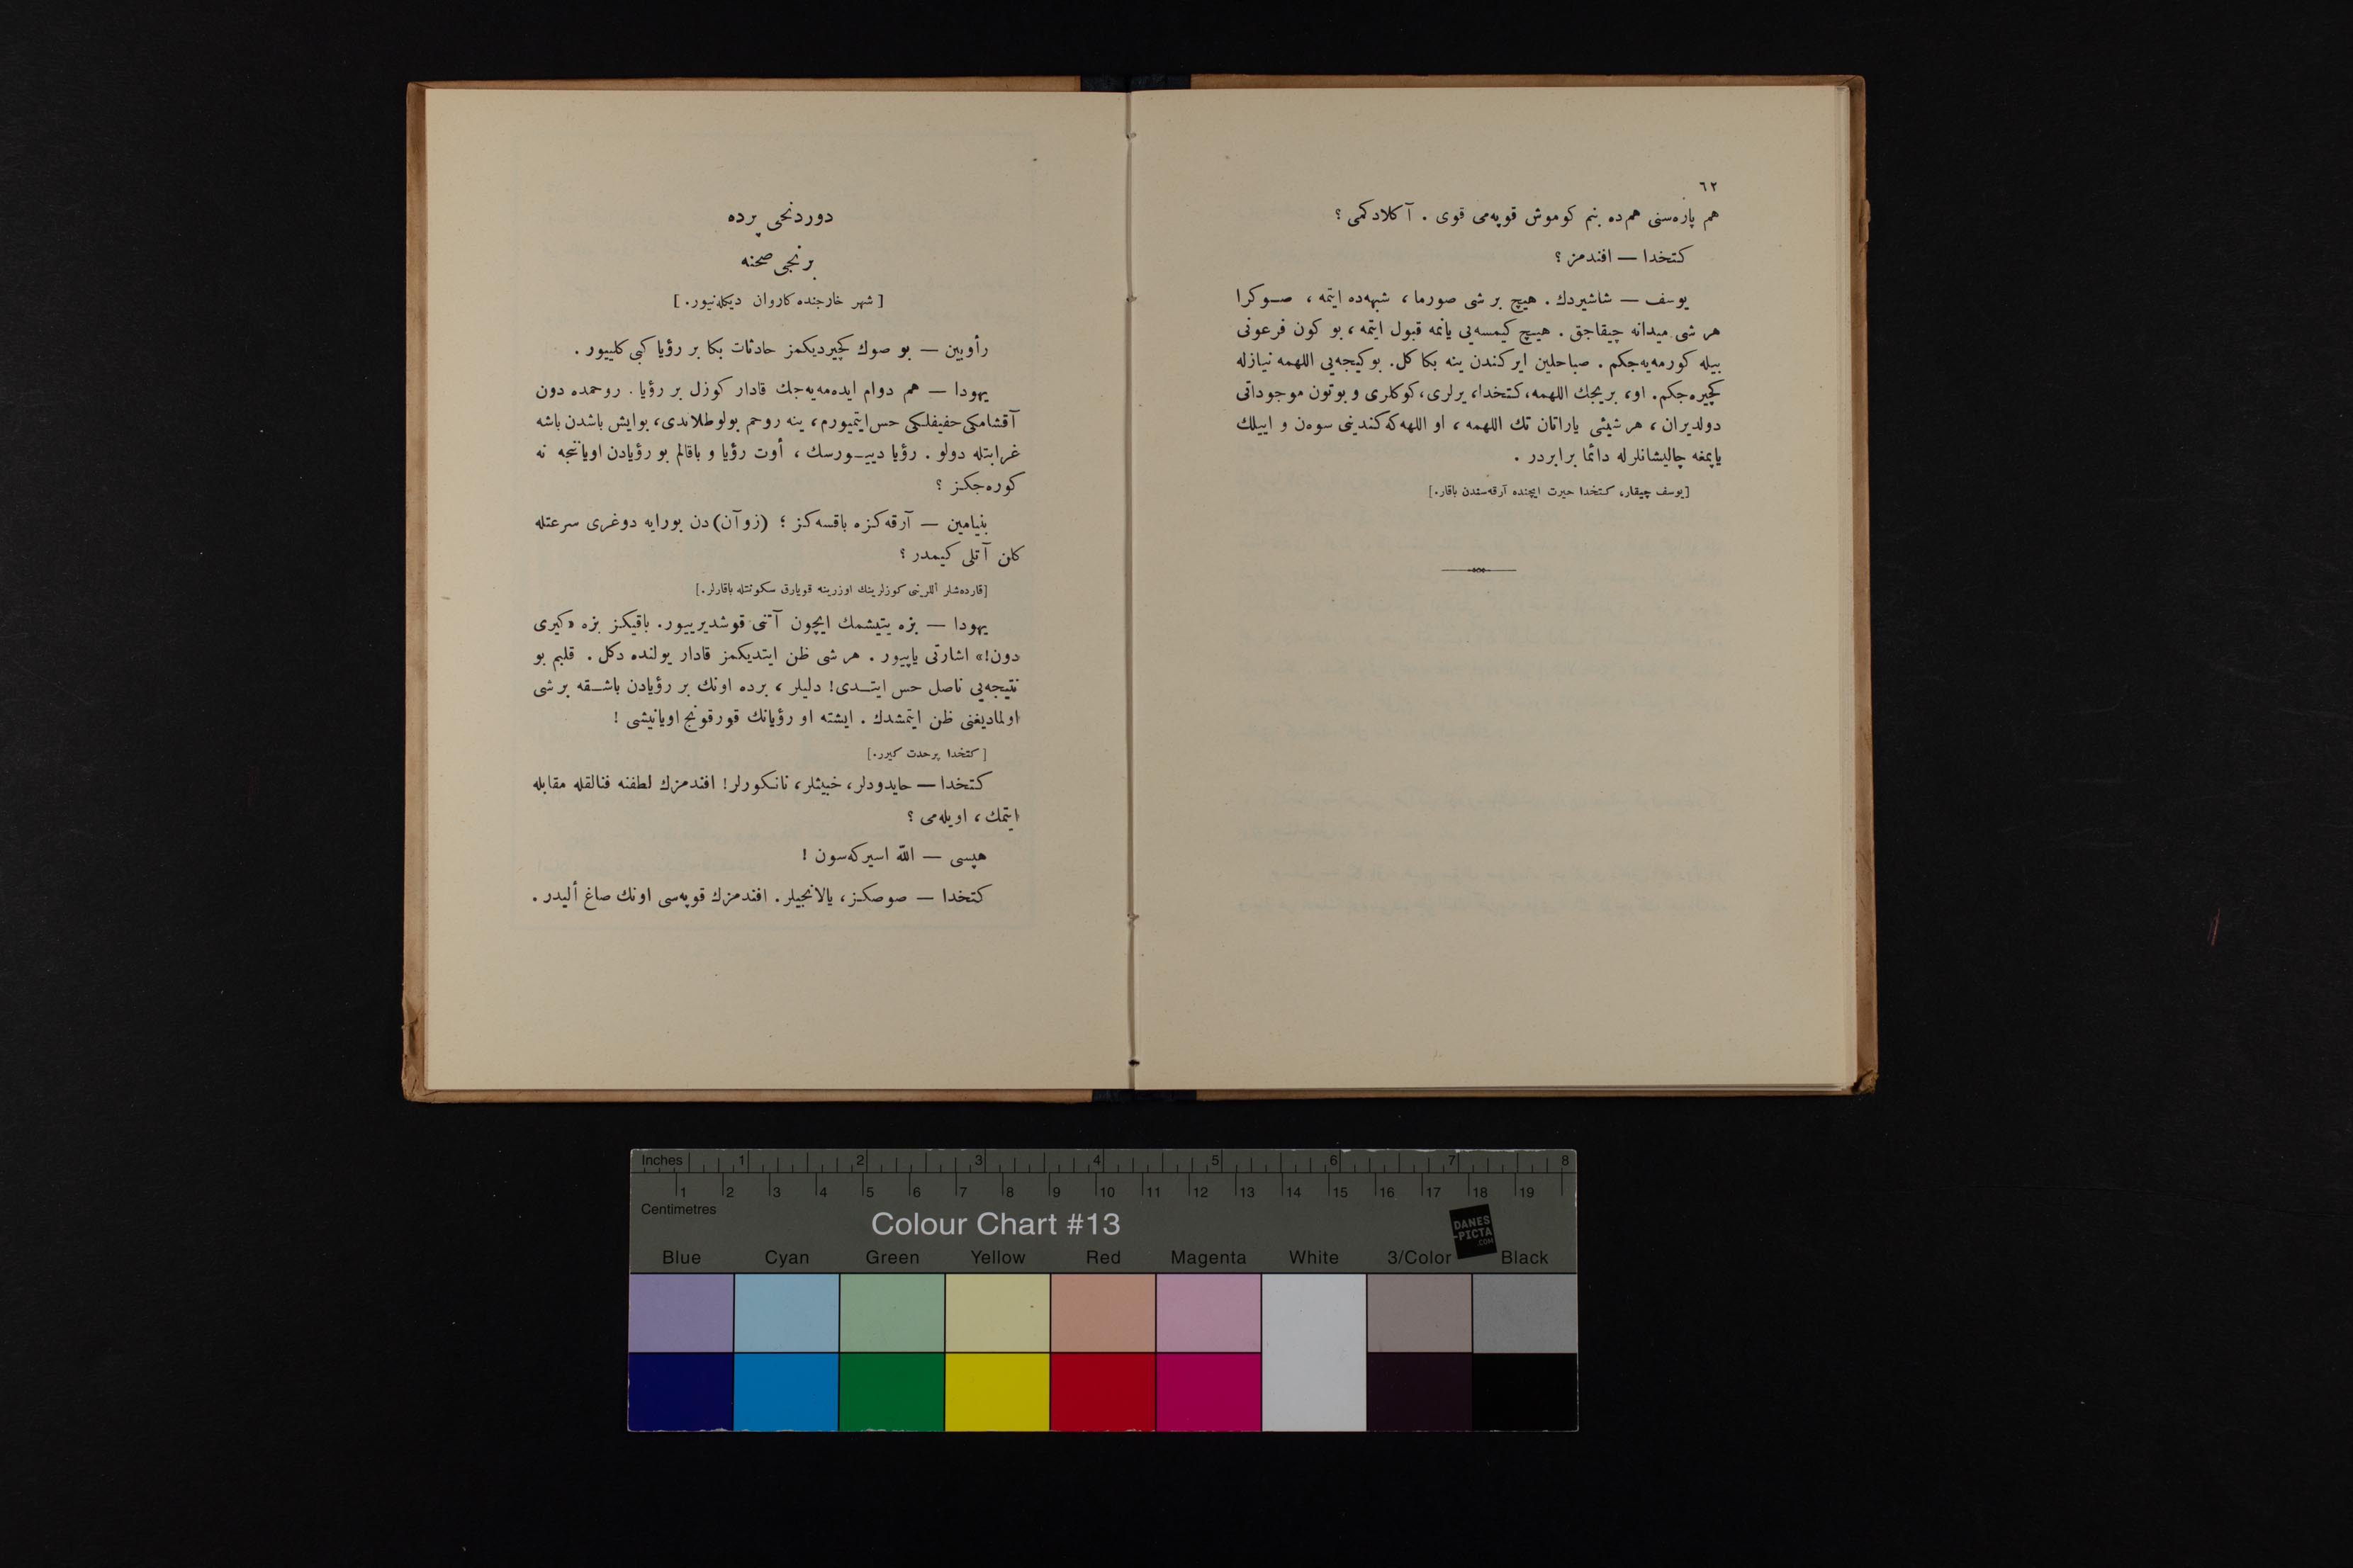 ٦٢
هم پاره‌سنی هم‌ده بنم کوموش قوپه‌می قوی . آ کلادکمی ؟
کتخدا — افندمز ؟
یوسف — شاشیردك . هیچ بر شی صورما ، شبهه‌ده ایتمه ، صوکرا
هر شی میدانه چیقاجق . هیچ کیمسه‌یی یانمه قبول ایتمه ، بو کون فرعونی
بیله کورمه‌یه‌جکم . صباحلین ایرکندن ینه بکا کل. بوکیجه‌یی اللهمه نیازله
کچیره‌جکم. او، بریجك اللهمه، کتخدا، یرلری، کوکلری و بوتون موجوداتی
دولدیران ، هر شیئی یاراتان تك اللهمه ، او اللهه که کندینی سوه‌ن و اییلك
یاپمغه چالیشانلرله دائما برابردر .
[یوسف چیقار، کتخدا حیرت ایچنده آرقه‌سندن باقار.]
دوردنجی پرده
برنجی صحنه
[ شهر خارجنده کاروان دیکله‌نیور. ]
رأوبین — بو صوك کچیردیکمز حادثات بکا بر رؤیا کبی کلییور .
یهودا — هم دوام ایده‌مه‌یه‌جك قادار کوزل بر رؤیا . روحمده دون
آقشامکی خفیفلکی حس ایتمیورم ، ینه روحم بولوطلاندی، بوایش باشدن باشه
غرابتله دولو . رؤیا دییورسك ، أوت رؤیا و باقالم بو رؤیادن اویاننجه نه
کوره‌جکز ؟
بنیامین — آرقه‌کزه باقسه‌کز ؛ (زوآن)دن بورایه دوغری سرعتله
کلن آتلی کیمدر ؟
[قارده‌شلر أللرینی کوزلرینك اوزرینه قویارق سکوتله باقارلر.]
یهودا — بزه یتیشمك ایچون آتنی قوشدیرییور. باقیکز بزه «کیری
دون!» اشارتی یاپیور . هر شی ظن ایتدیکمز قادار یولنده دکل . قلبم بو
نتیجه‌یی ناصل حس ایتدی! دلیلر ، برده اونك بر رؤیادن باشقه بر شی
اولمادیغنی ظن ایتمشدك . ایشته او رؤیانك قورقونج اویانیشی !
[کتخدا پرحدت کیرر.]
کتخدا — حایدودلر، خبیثلر، نانکورلر! افندمزك لطفنه فنالقله مقابله
ایتمك ، اویله‌می ؟
هپسی — الله اسیرکه‌سون !
کتخدا — صوصکز، یالانجیلر. افندمزك قوپه‌سی اونك صاغ ألیدر .
Inches 1 2 3 4 5 6 7 8
1 2 3 4 5 6 7 8 9 10 11 12 13 14 15 16 17 18 19
Centimetres
Colour Chart #13
DANES
-PICTA
.COM
Blue Cyan Green Yellow Red Magenta White 3/Color Black